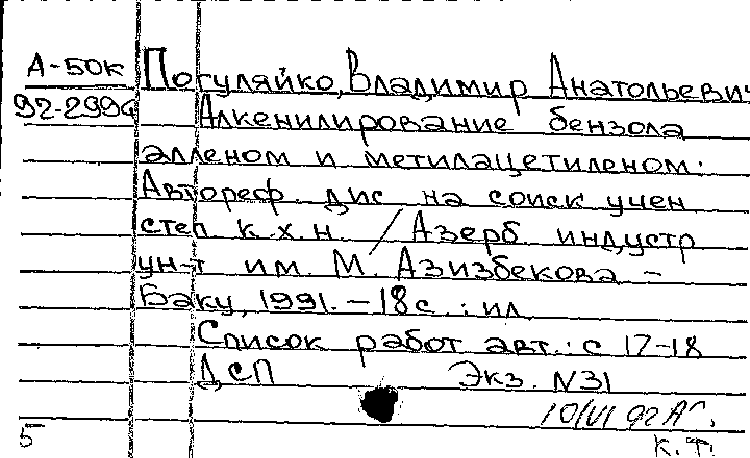 А-50к Погуляйко, Владимир Анатольевич
92-2996 Алкенилирование бензола
алленом и метилацетиленом.
Автореф. дис на соиск учен
степ к.х.н. / Азерб индустр
ун-т им. М. Азизбекова -
Баку, 1991. - 18 с. : ил
Список работ авт.: с 17-18
ДСП Экз. N31
10/VI 92
5 К.Т.